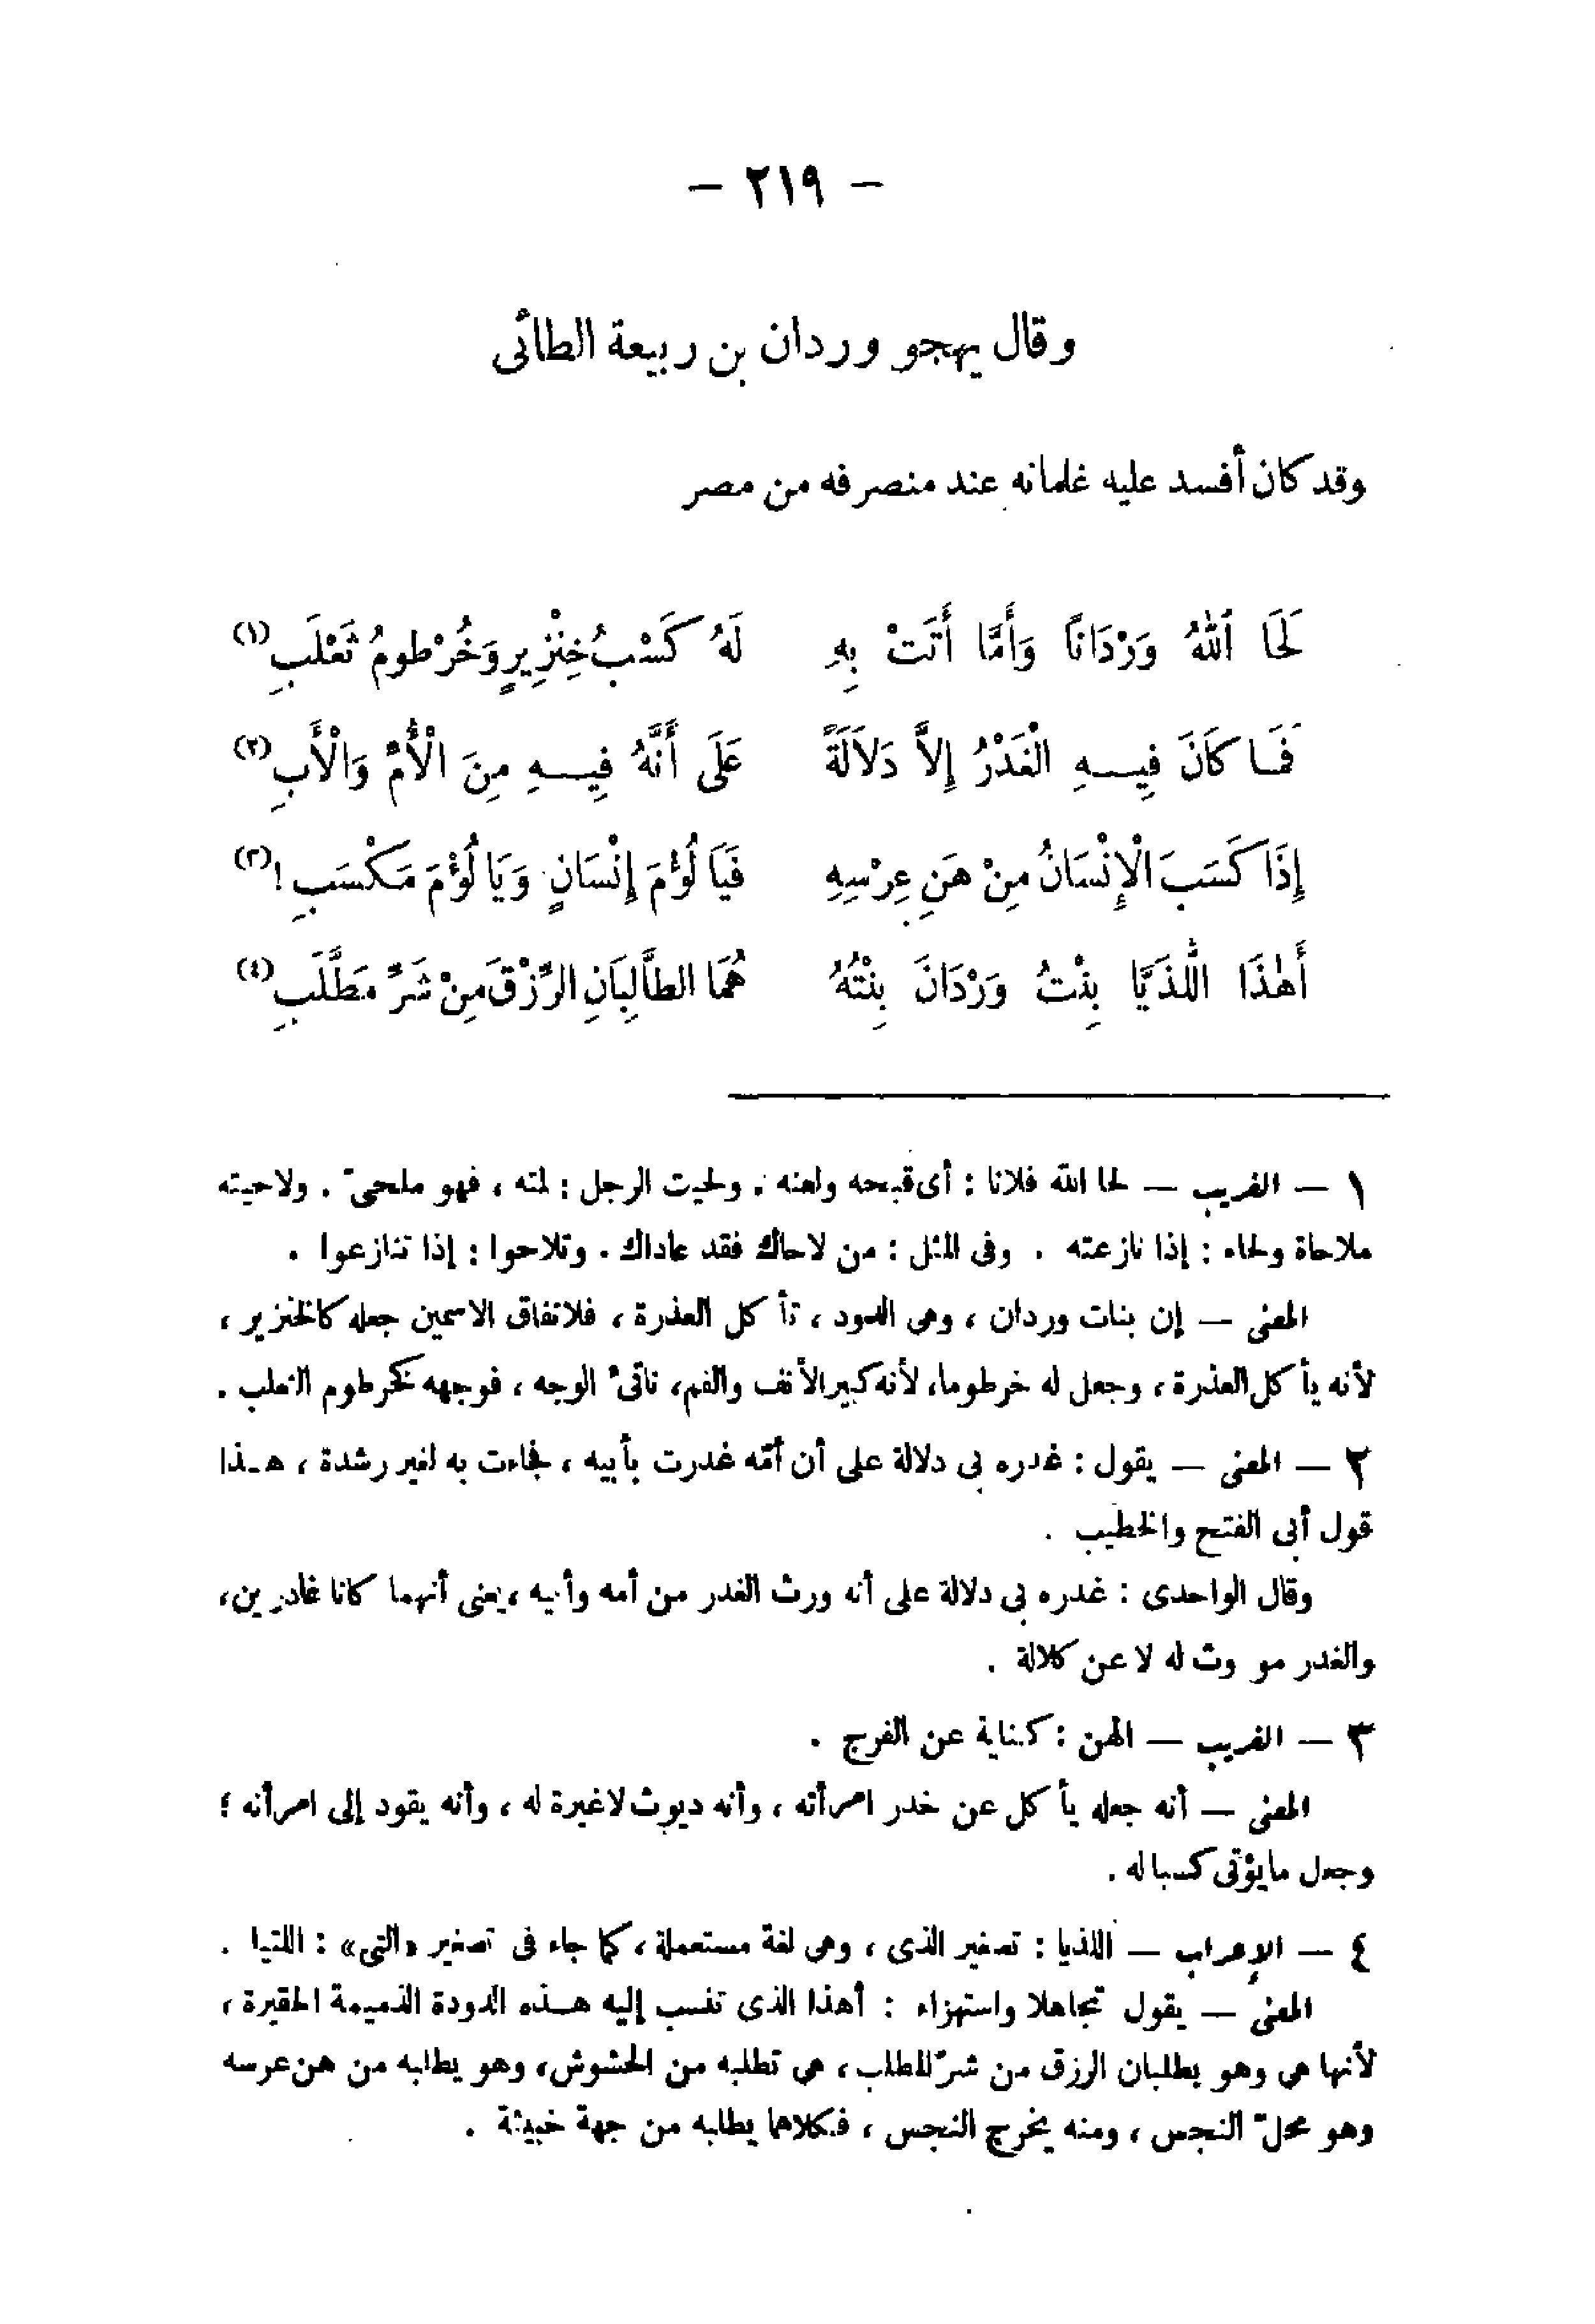 — ٢١٩ —
وقال يهجو وردان بن ربيعة الطائى
وقد كان أفسد عليه غلمانه عند منصرفه من مصر
لَحَا ٱللهُ وَرْدَانًا وَأُمًّا أَتَتْ بِهِ لَهُ كَسْبُ خِنْزِيرٍ وَخُرْطُومُ ثَعْلَبِ (١)
فَمَا كَانَ فِيهِ الْغَدْرُ إِلاَّ دَلاَلَةً عَلَى أَنَّهُ فِيهِ مِنَ الْأُمِّ وَالْأَبِ (٢)
إِذَا كَسَبَ الْإِنْسَانُ مِنْ هَنِ عِرْسِهِ فَيَا لُؤْمَ إِنْسَانٍ وَيَا لُؤْمَ مَكْسَبِ ! (٣)
أَهٰذَا اللَّذَيَّا بِنْتُ وَرْدَانَ بِنْتُهُ هُمَا الطَّالِبَانِ الرِّزْقَ مِنْ شَرِّ مَطْلَبِ (٤)
١ — الغريب — لحا الله فلانا : أى قبحه ولعنه . ولحيت الرجل : لمته ، فهو ملحىّ . ولاحيته
ملاحاة ولحاء : إذا نازعته . وفى المثل : من لاحاك فقد عاداك . وتلاحوا : إذا تنازعوا .
المعنى — إن بنات وردان ، وهى الدود ، تأكل العذرة ، فلاتفاق الاسمين جعله كالخنزير ،
لأنه يأكل العذرة ، وجعل له خرطوما، لأنه كبير الأنف والفم، ناتئ الوجه ، فوجهه كخرطوم الثعلب .
٢ — المعنى — يقول : غدره بى دلالة على أن أمّه غدرت بأبيه ، فجاءت به لغير رشدة ، هـذا
قول أبى الفتح والخطيب .
وقال الواحدى : غدره بى دلالة على أنه ورث الغدر من أمه وأبيه ، يعنى أنهما كانا غادرين،
والغدر مو وث له لا عن كلالة .
٣ — الغريب — الهن : كناية عن الفرج .
المعنى — أنه جعله يأكل عن خدر امرأته ، وأنه ديوث لا غيرة له ، وأنه يقود إلى امرأته ؛
وجعل ما يؤتى كسبا له .
٤ — الإعراب — اللذيا : تصغير الذى ، وهى لغة مستعملة ، كما جاء فى تصغير «التى» : اللتيا .
المعنى — يقول تجاهلا واستهزاء : أهذا الذى تنسب إليه هـذه الدودة الذميمة الحقيرة ،
لأنها هى وهو يطلبان الرزق من شرّ المطلب ، هى تطلبه من الحشوش، وهو يطلبه من هن عرسه
وهو محلّ النجس ، ومنه يخرج النجس ، فكلاهما يطلبه من جهة خبيثة .